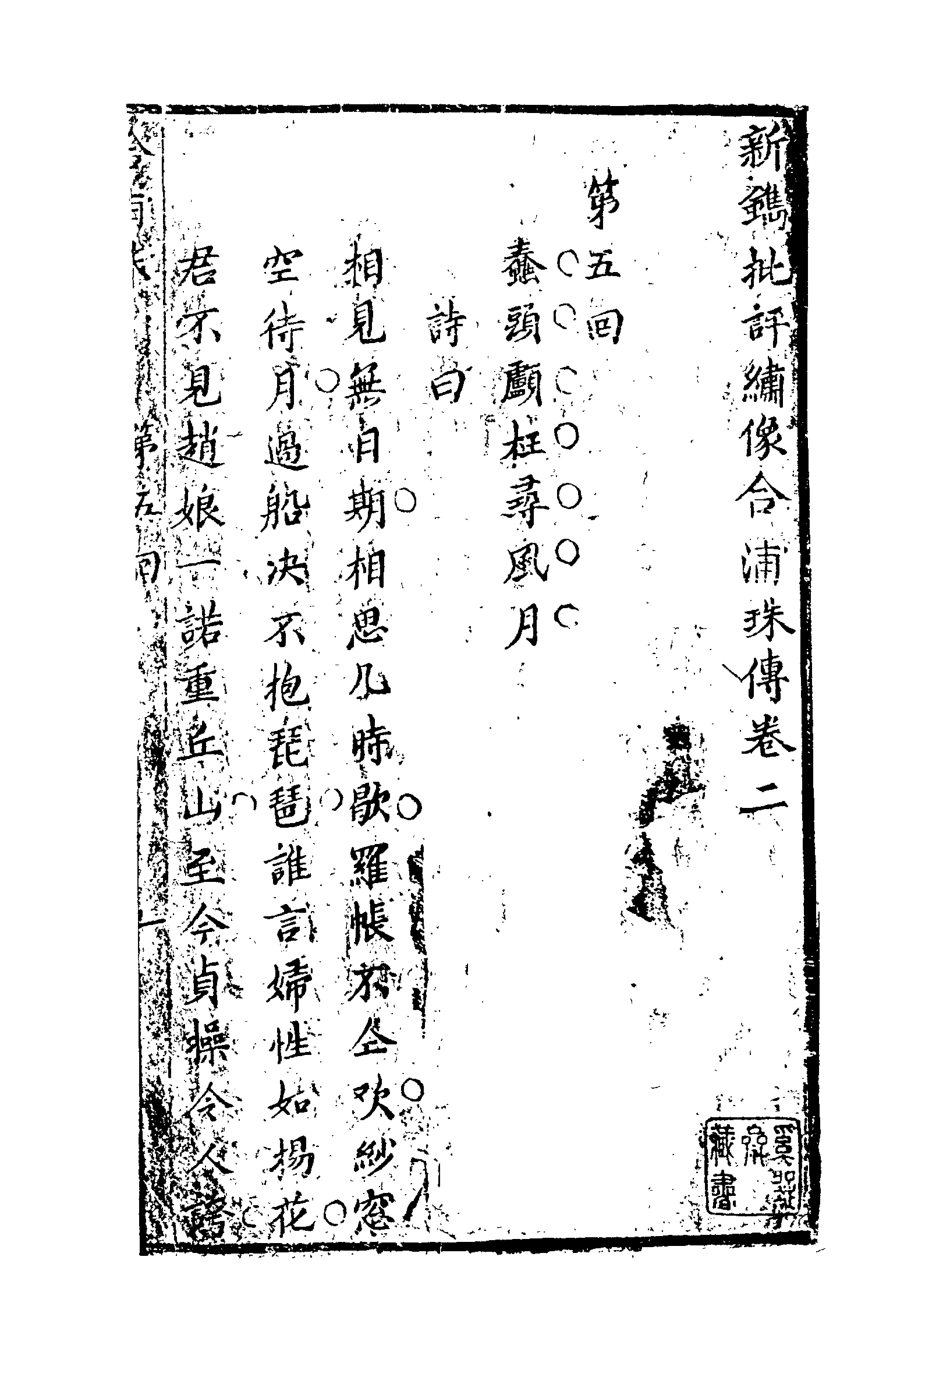 新鐫批評繡像合浦珠傳卷二
第五回
蠢頭顱枉尋風月
詩曰
相見無日期相思几時歇羅帳不仝欢紗窓
空待月過船决不抱琵琶誰言婦性如楊花
君不見趙娘一諾重丘山至今貞操令人誇
第五回
藏書